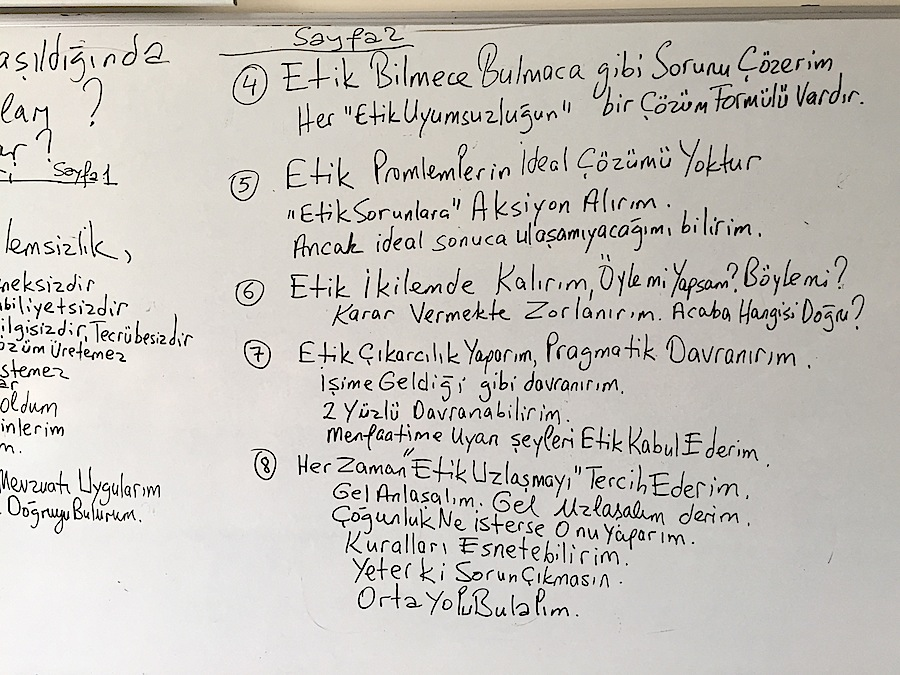 aşıldığında
ları ?
ar ?
Sayfa 1
lemsizlik,
neksizdir
abiliyetsizdir
ilgisizdir, Tecrübesizdir
özüm Üretemez
stemez
ar
oldum
inlerim
m.
Mevzuatı Uygularım
Doğruyu Bulurum.
Sayfa 2
④ Etik Bilmece Bulmaca gibi Sorunu Çözerim
Her "Etik Uyumsuzluğun" bir Çözüm Formülü Vardır.
⑤ Etik Promlemlerin İdeal Çözümü Yoktur
"Etik Sorunlara" Aksiyon Alırım.
Ancak ideal sonuca ulaşamıyacağımı bilirim.
⑥ Etik İkilemde Kalırım, Öyle mi Yapsam? Böyle mi?
Karar Vermekte Zorlanırım. Acaba Hangisi Doğru?
⑦ Etik Çıkarcılık Yaparım, Pragmatik Davranırım.
İşime Geldiği gibi davranırım.
2 Yüzlü Davranabilirim.
Menfaatime Uyan şeyleri Etik Kabul Ederim
⑧ Her Zaman "Etik Uzlaşmayı" Tercih Ederim.
Gel Anlaşalım. Gel Uzlaşalım derim.
Çoğunluk Ne isterse Onu Yaparım.
Kuralları Esnetebilirim.
Yeter ki Sorun Çıkmasın.
Orta Yolu Bulalım.